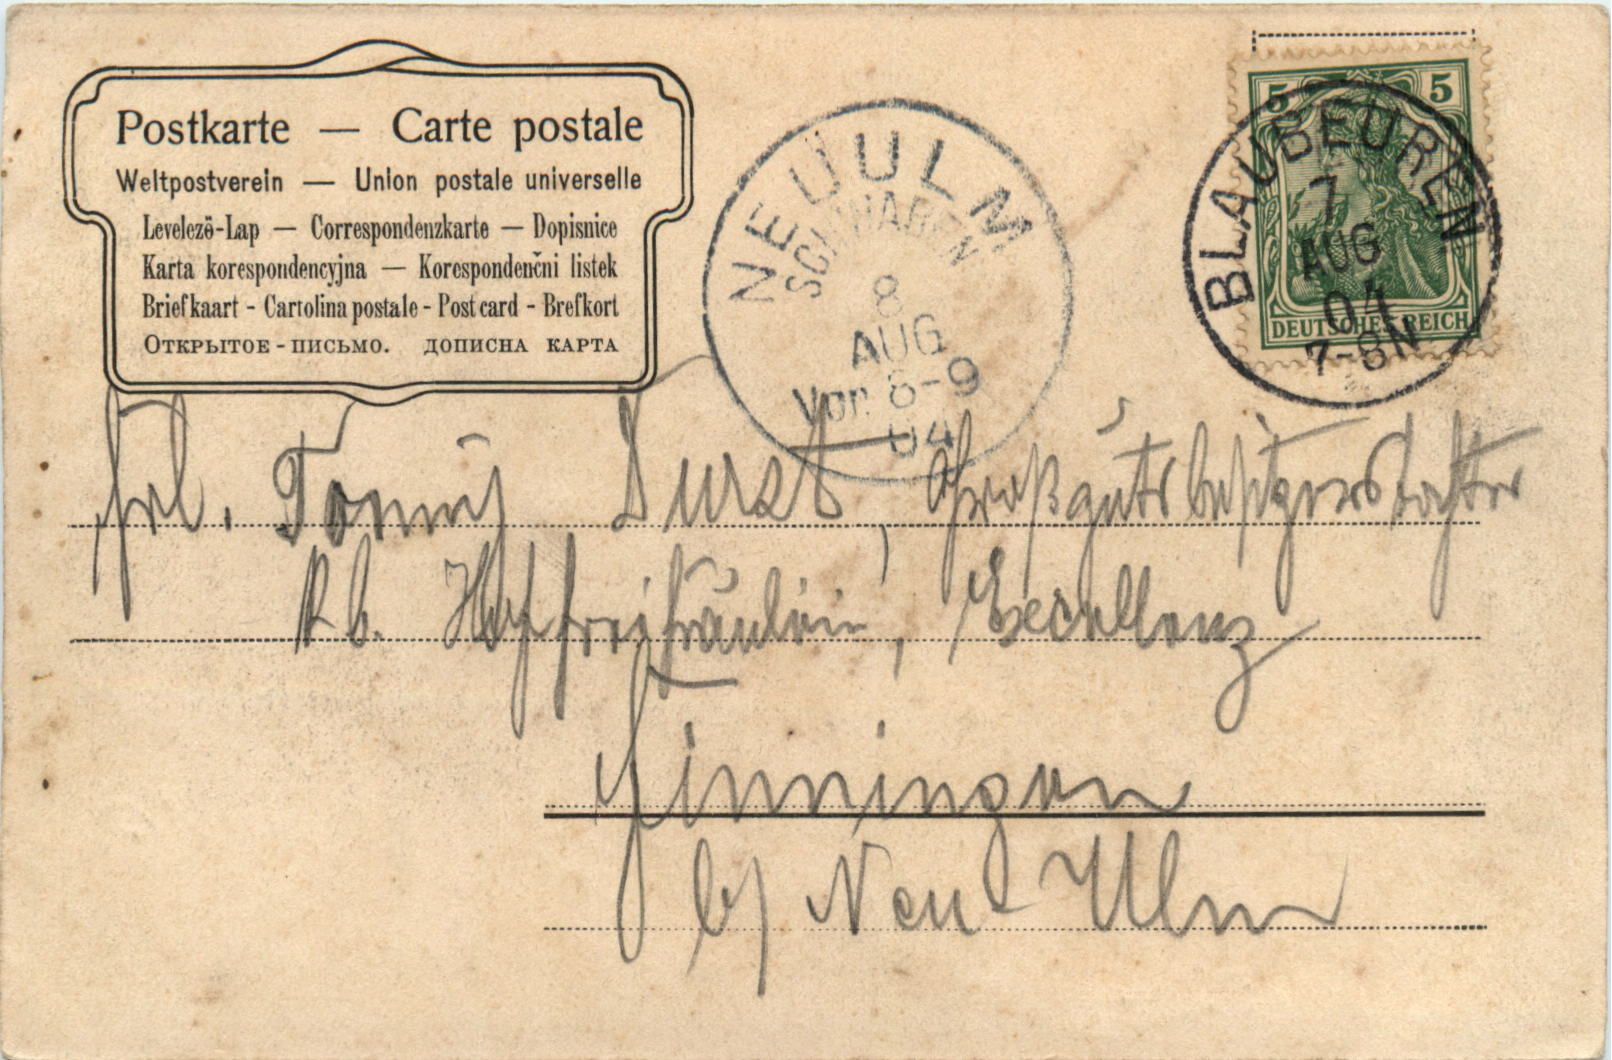 Postkarte — Carte postale
Weltpostverein — Union postale universelle
Levelező-Lap — Correspondenzkarte — Dopisnice
Karta korespondencyjna — Korespondenčni listek
Briefkaart - Cartolina postale - Post card - Brefkort
Открытое - письмо. дописна карта
NEUULM
SCHWABEN
8
AUG
Vor. 8-9
04
5 5
DEUTSCHES REICH
BLAUBEUREN
7
AUG
04
7-8N
Frl. Tonny Durst, Großgutsbesitzerstochter
kb. Hopfreifräulein, Excellenz
Finningen
b/ Neu-Ulm